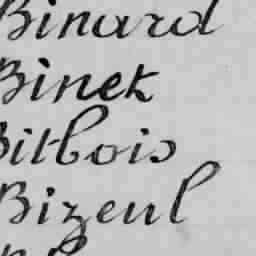 Binard
Binek
Bitbois
Bizeul